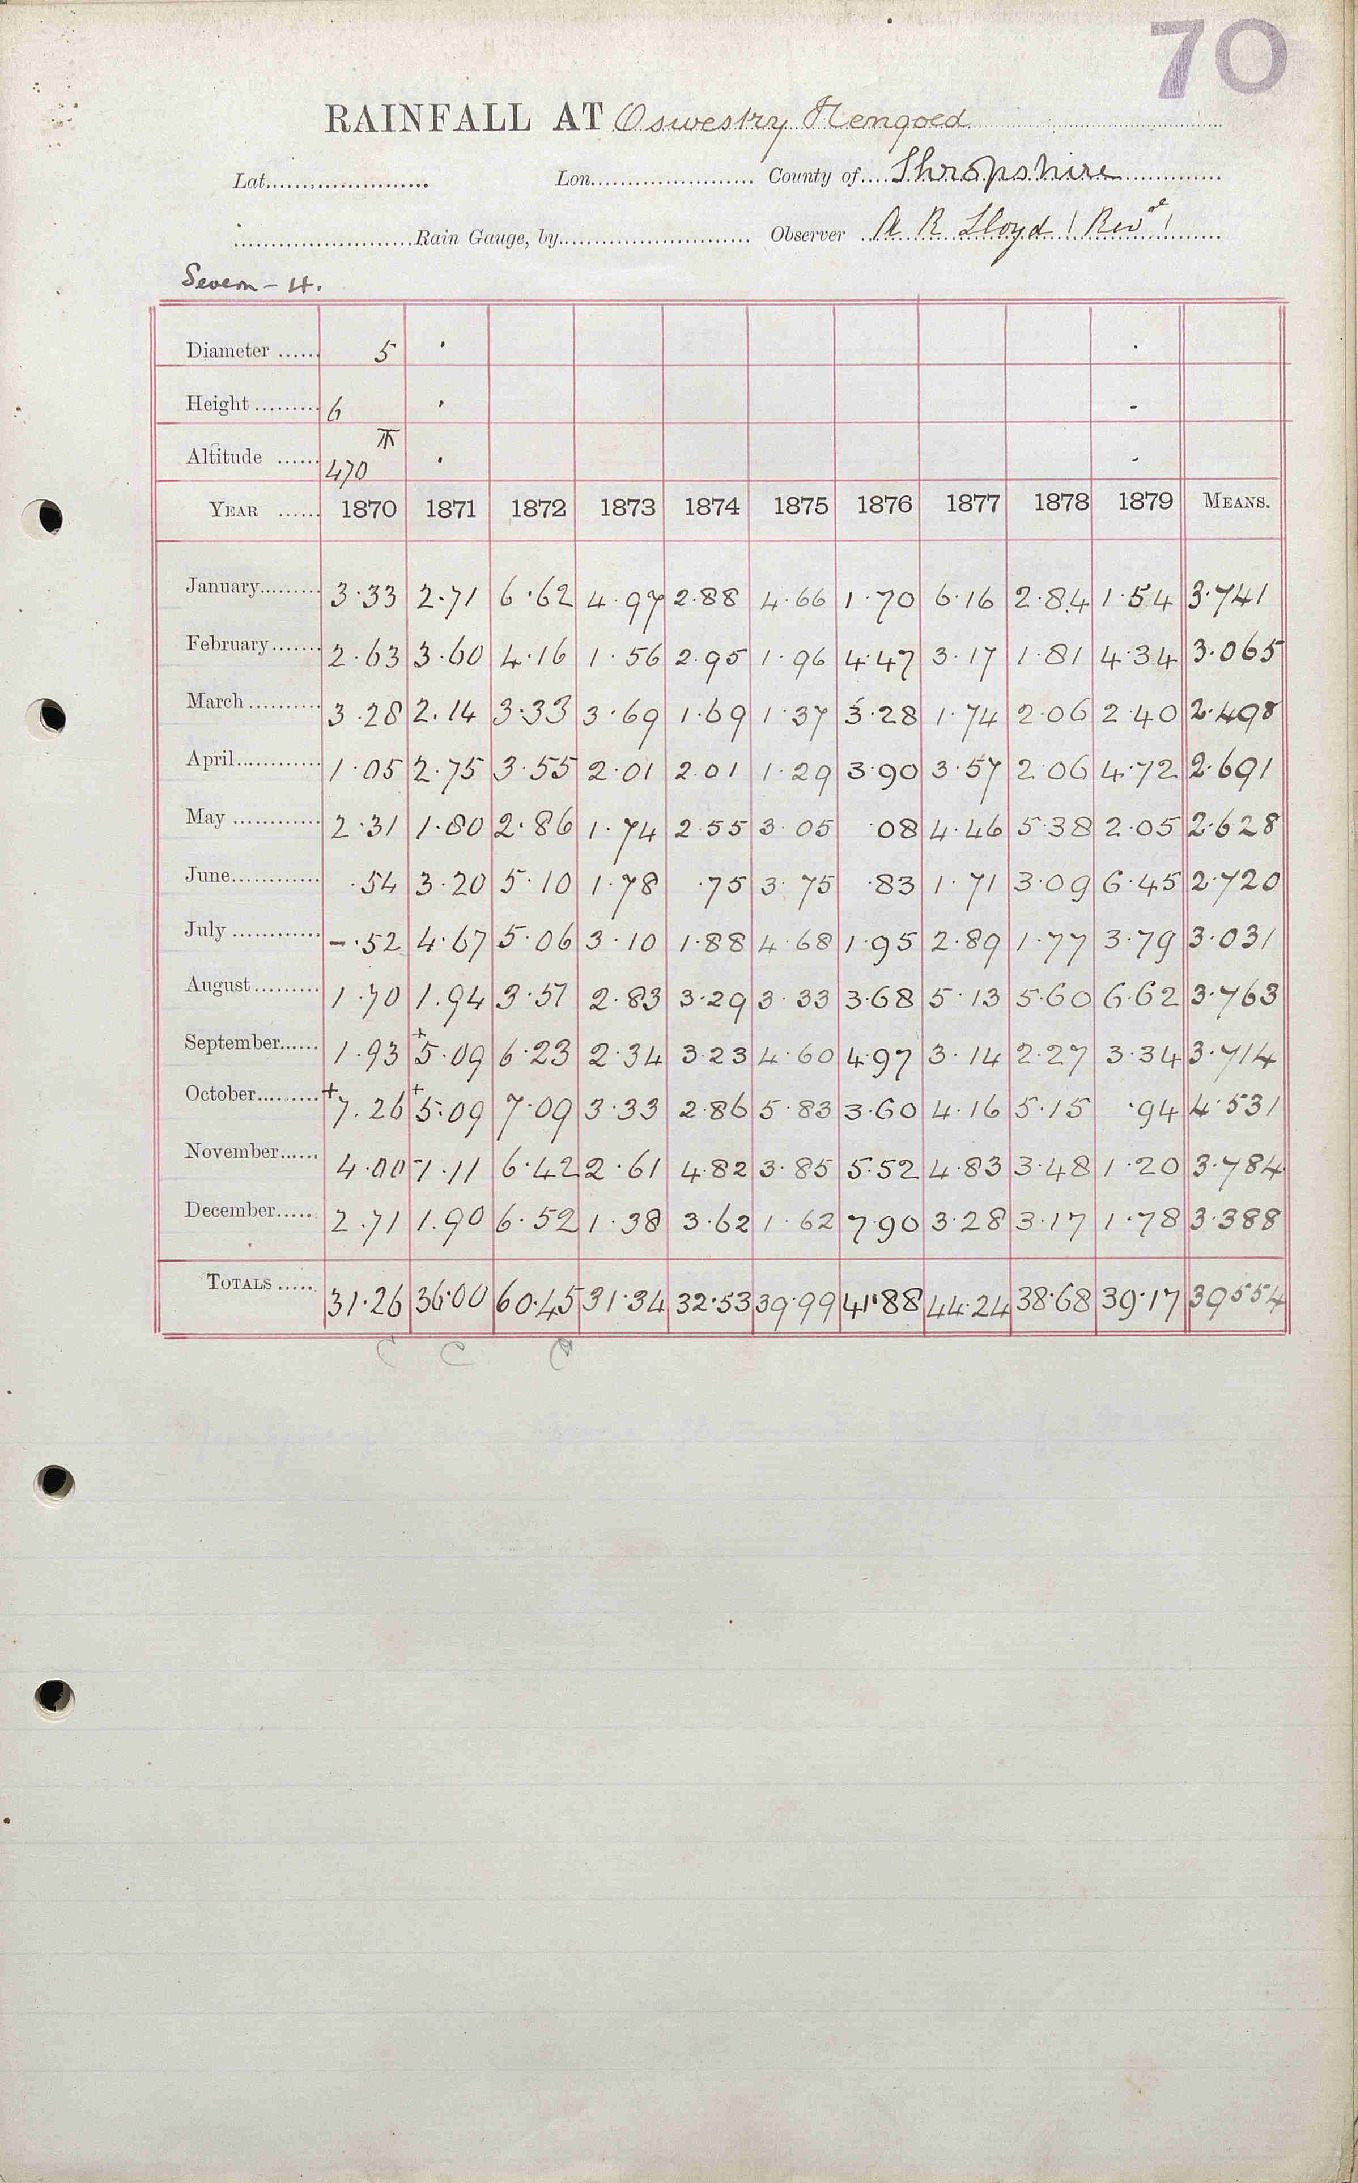 70
RAINFALL AT Oswestry Hengoed
Lat. Lon. County of Shropshire
Rain Gauge, by Observer A R Lloyd (Revd)
Severn - 4.
Diameter 5
Height 6
Altitude 470
YEAR 1870 1871 1872 1873 1874 1875 1876 1877 1878 1879 MEANS.
January 3.33 2.71 6.62 4.97 2.88 4.66 1.70 6.16 2.84 1.54 3.741
February 2.63 3.60 4.16 1.56 2.95 1.96 4.47 3.17 1.81 4.34 3.065
March 3.28 2.14 3.33 3.69 1.69 1.37 3.28 1.74 2.06 2.40 2.498
April 1.05 2.75 3.55 2.01 2.01 1.29 3.90 3.57 2.06 4.72 2.691
May 2.31 1.80 2.86 1.74 2.55 3.05 08 4.46 5.38 2.05 2.628
June .54 3.20 5.10 1.78 .75 3.75 .83 1.71 3.09 6.45 2.720
July -.52 4.67 5.06 3.10 1.88 4.68 1.95 2.89 1.77 3.79 3.031
August 1.70 1.94 3.51 2.83 3.29 3.33 3.68 5.13 5.60 6.62 3.763
September 1.93 +5.09 6.23 2.34 3.23 4.60 4.97 3.14 2.27 3.34 3.714
October +7.26 +5.09 7.09 3.33 2.86 5.83 3.60 4.16 5.15 .94 4.531
November 4.00 1.11 6.42 2.61 4.82 3.85 5.52 4.83 3.48 1.20 3.784
December 2.71 1.90 6.52 1.38 3.62 1.62 7.90 3.28 3.17 1.78 3.388
TOTALS 31.26 36.00 60.45 31.34 32.53 39.99 41.88 44.24 38.68 39.17 39554
C C